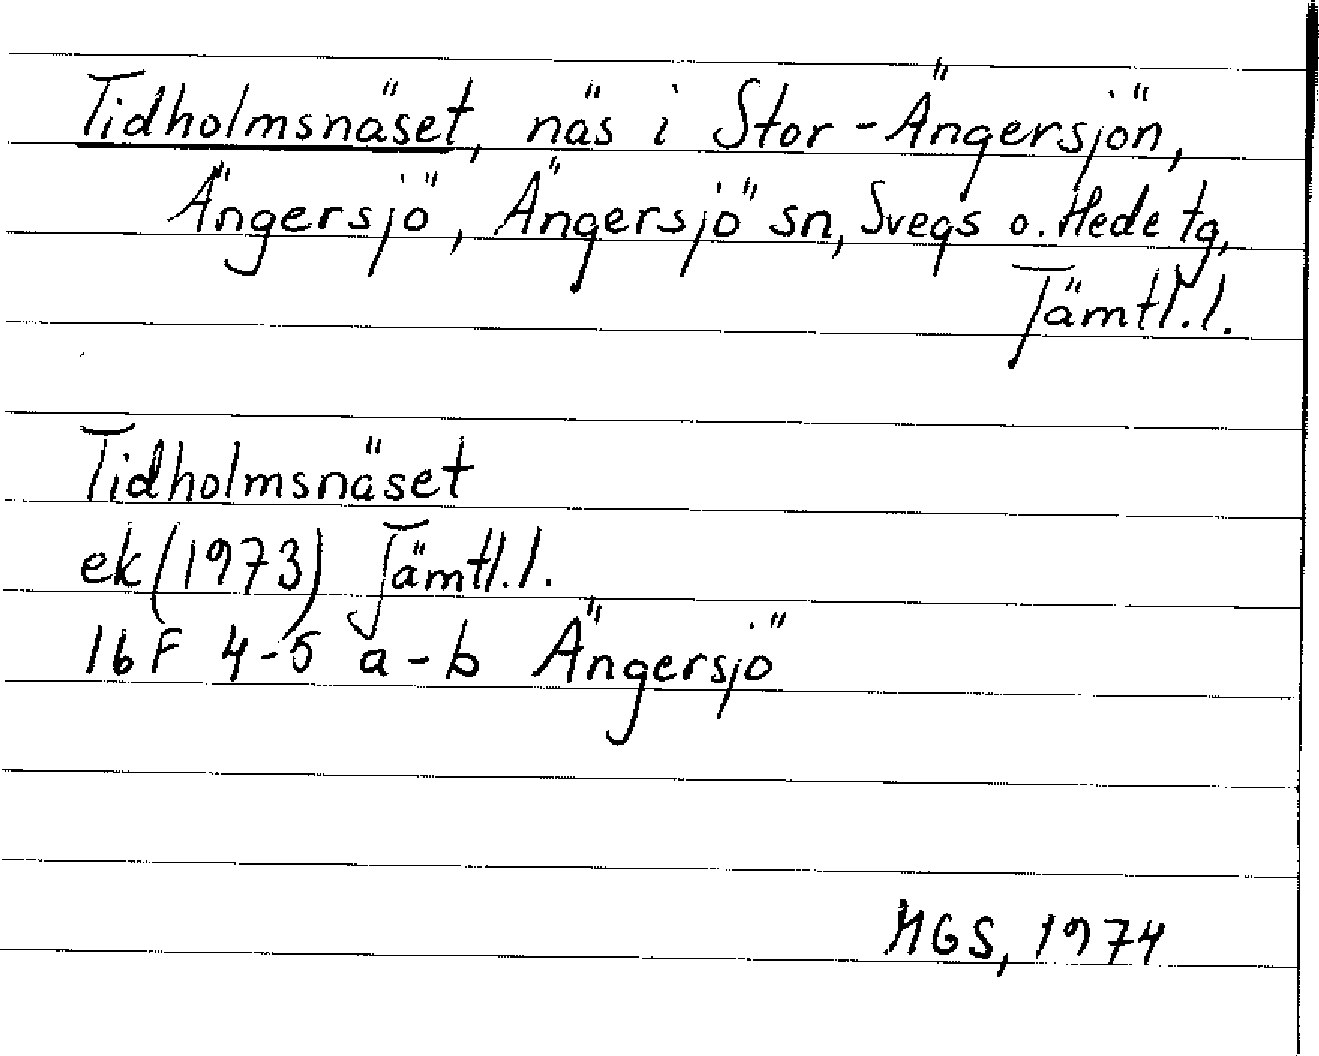 Tidholmsnäset, näs i Stor-Ängersjön,
Ängersjö, Ängersjö sn, Svegs o. Hede tg,
Jämtl.l.
Tidholmsnäset
ek (1973) Jämtl.l.
16F 4-5 a-b Ängersjö
MGS, 1974